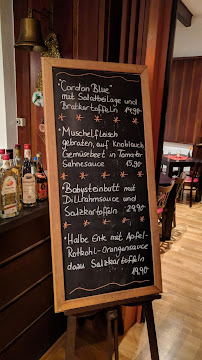 "Cordon Bleu"
mit Salatbeilage und
Bratkartoffeln 14.90
Muschelfleisch
gebraten, auf Knoblauch
Gemüsebeet in Tomaten-
Sahnesauce 15.90
Babysteinbutt mit
Dillrahmsauce und
Salzkartoffeln 28.90
Halbe Ente mit Apfel-
Rotkohl-Orangensauce
dazu Salzkartoffeln
19.90